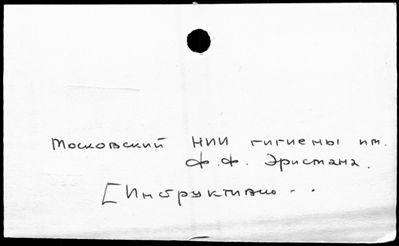 Московский НИИ гигиены им.
Ф.Ф. Эрисмана.
[Инструктивно . .